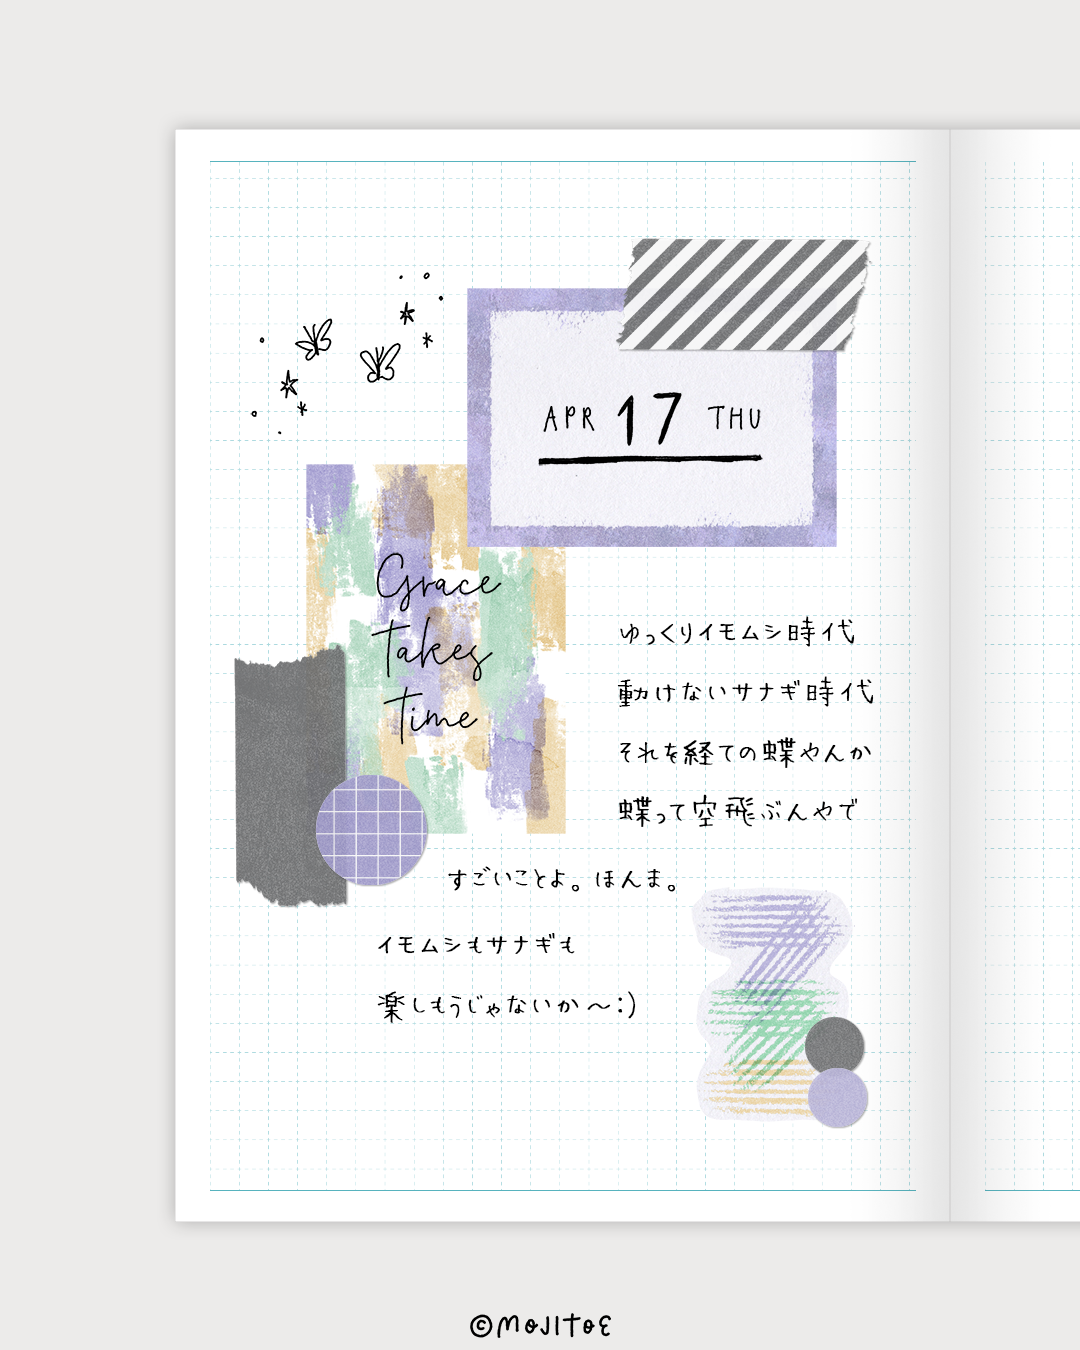 APR 17 THU
Grace
Takes
Time
ゆっくりイモムシ時代
動けないサナギ時代
それを経ての蝶やんか
蝶って空飛ぶんやで
すごいことよ。ほんま。
イモムシもサナギも
楽しもうじゃないか〜:)
©MOJITOE